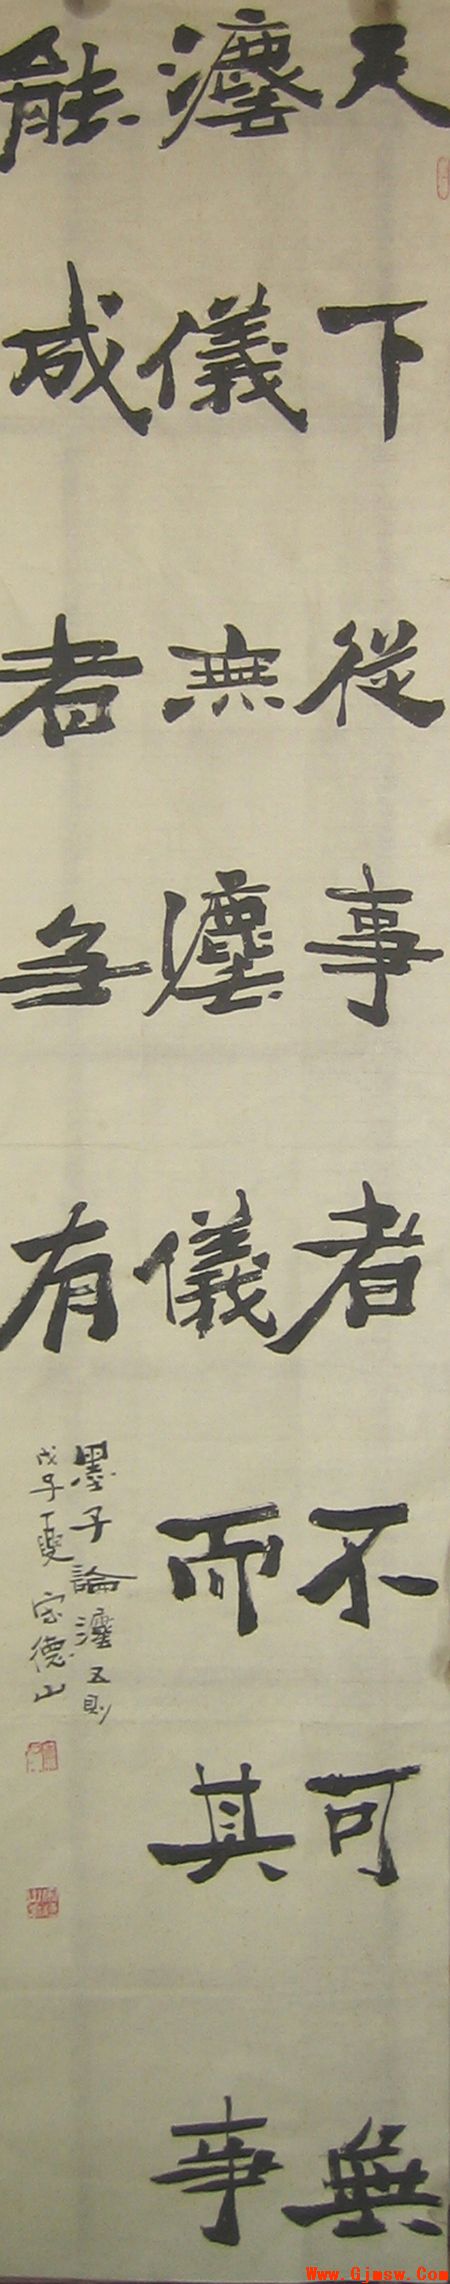 天下從事者不可無
灋儀無灋儀而其事
能成者无有
墨子論灋五則
戊子夏 德山
Www.Gjmsw.Com